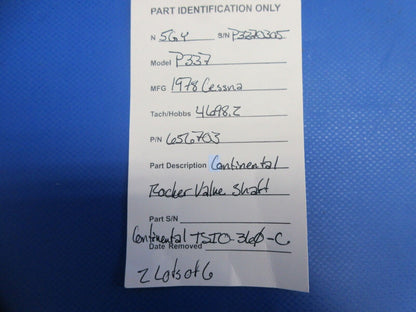 PART IDENTIFICATION ONLY
N 5GY S/N P3370305
Model P337
MFG 1978 Cessna
Tach/Hobbs 4698.2
P/N 656703
Part Description Continental
Rocker Valve Shaft
Part S/N
Continental TSIO-360-C
Date Removed
2 Lots of 6